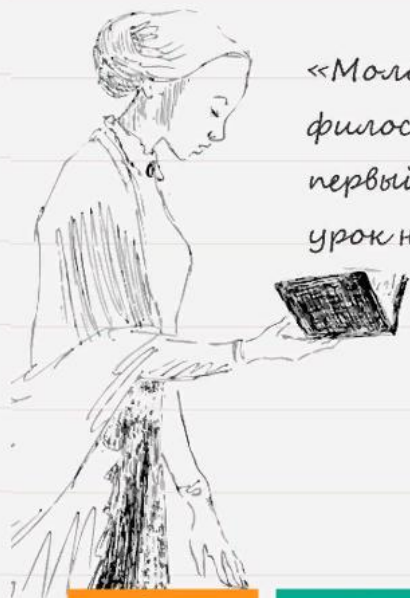 «Моло
филос
первый
урок н